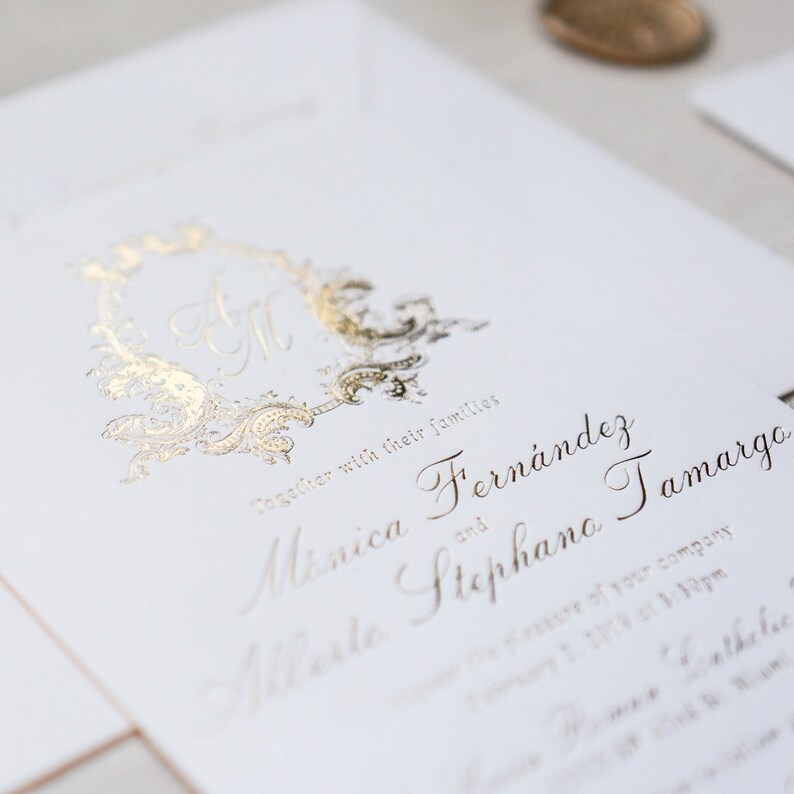 AM
Together with their families
Mónica Fernández
and
Alberto Stephano Tamargo
request the pleasure of your company
February 2, at
Roman Catholic
Miami,